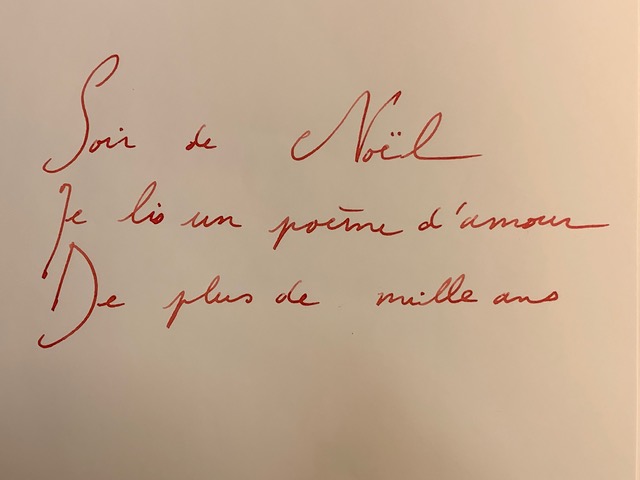 Soir de Noël
Je lis un poème d'amour
De plus de mille ans